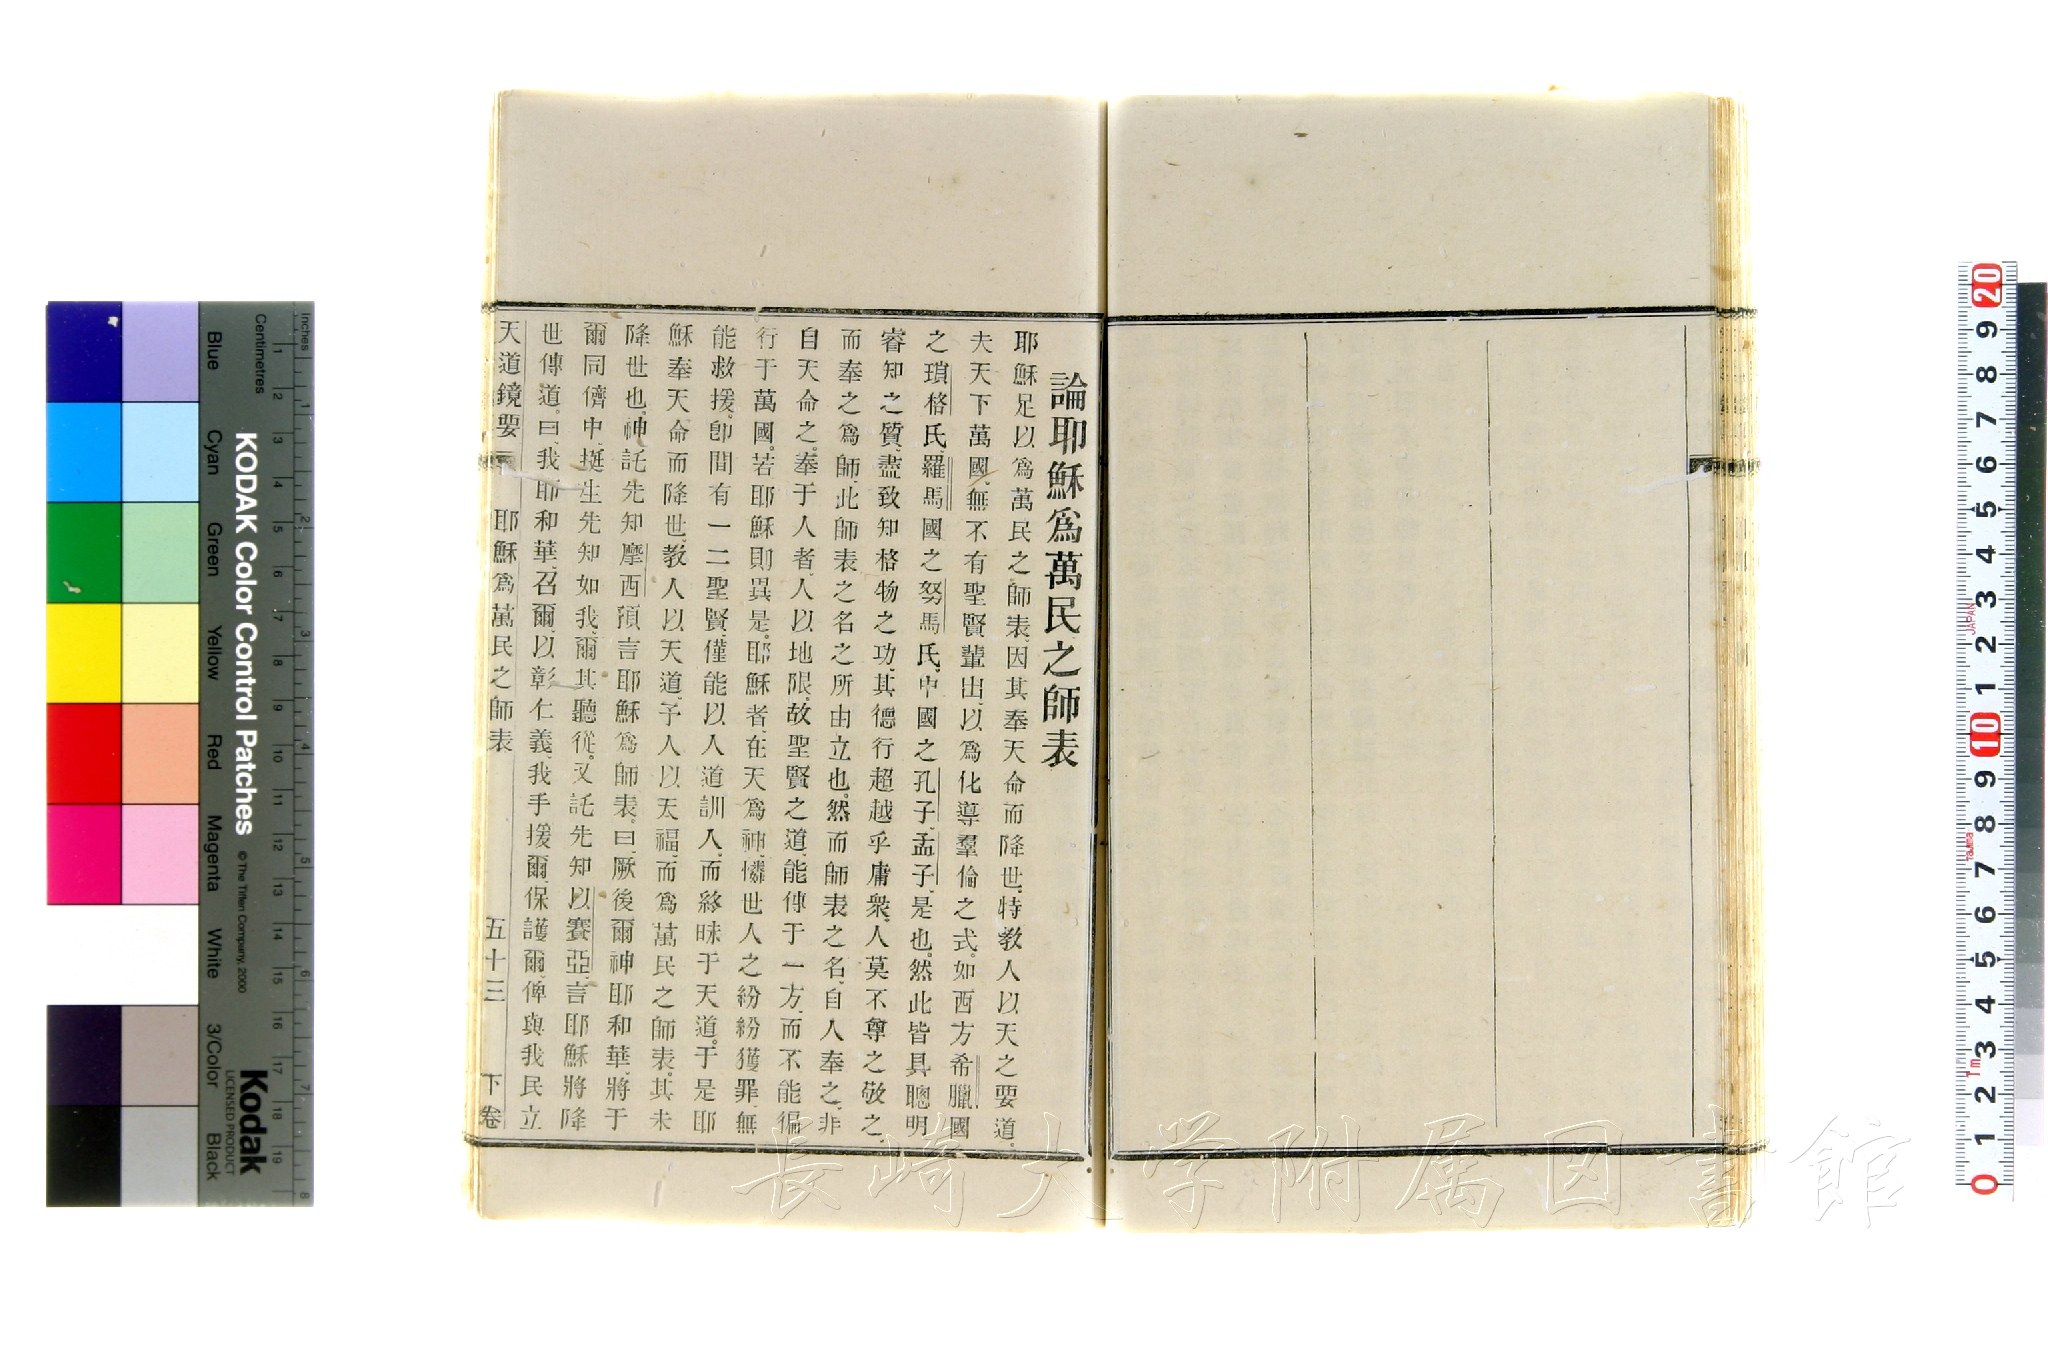 論耶穌爲萬民之師表
耶穌足以爲萬民之師表、因其奉天命而降世、特教人以天之要道、
夫天下萬國、無不有聖賢輩出、以爲化導羣倫之式。如西方希臘國
之瑣格氏、羅馬國之努馬氏、中國之孔子、孟子、是也。然此皆具聰明
睿知之質、盡致知格物之功、其德行超越乎庸衆、人莫不尊之敬之、
而奉之爲師、此師表之名之所由立也。然而師表之名、自人奉之、非
自天命之。奉于人者、人以地限、故聖賢之道、能傳于一方、而不能徧
行于萬國。若耶穌則異是。耶穌者、在天爲神、憐世人之紛紛獲罪、無
能救援。卽間有一二聖賢、僅能以人道訓人、而終昧于天道。于是耶
穌奉天命而降世、教人以天道、予人以天福、而爲萬民之師表。其未
降世也、神託先知摩西預言耶穌爲師表。曰、厥後爾神耶和華、將于
爾同儕中、挺生先知如我、爾其聽從。又託先知以賽亞、言耶穌將降
世傳道。曰、我耶和華、召爾、以彰仁義、我手援爾、保護爾、俾與我民立
天道鏡要 耶穌爲萬民之師表 五十三 下卷
長崎大学附属図書館
KODAK Color Control Patches
© The Tiffen Company, 2000
Kodak
LICENSED PRODUCT
Inches
Centimetres
Blue
Cyan
Green
Yellow
Red
Magenta
White
3/Color
Black
1 2 3 4 5 6 7 8 9 10 11 12 13 14 15 16 17 18 19
1 2 3 4 5 6 7 8
20 9 8 7 6 5 4 3 2 1 10 9 8 7 6 5 4 3 2 1 0
JAPAN